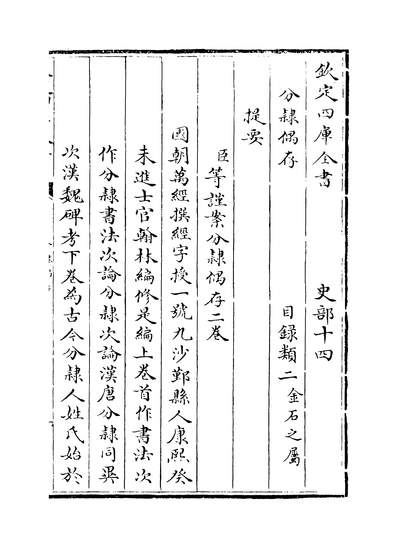 欽定四庫全書 史部十四
分隸偶存 目録類二金石之屬
提要
臣等謹案分隸偶存二巻
國朝萬經撰經字授一號九沙鄞縣人康熙癸
未進士官翰林編修是編上巻首作書法次
作分隸書法次論分隸次論漢唐分隸同異
次漢魏碑考下巻為古今分隸人姓氏始於